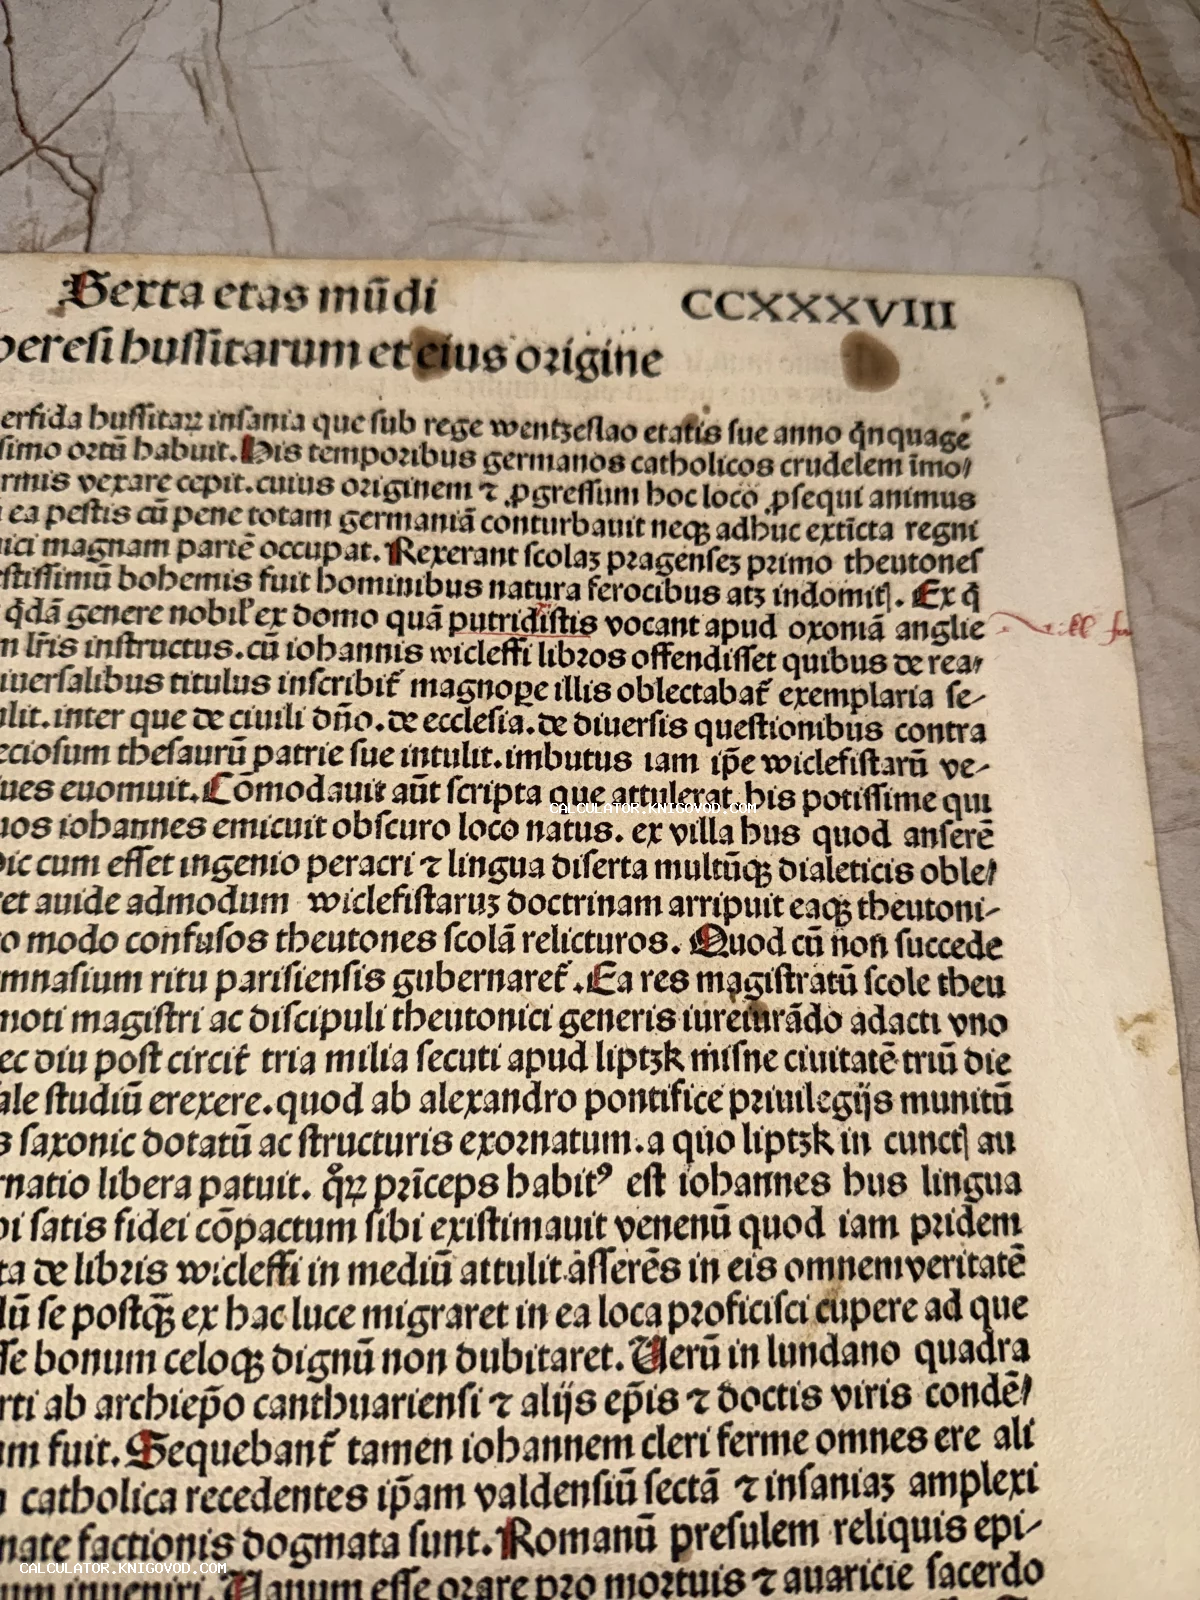 Sexta etas mūdi CCXXXVIII
heresi hussitarum et eius origine
erfida hussitaꝝ insania que sub rege wentzeslao etatis sue anno q̄nquage
simo ortū habuit. His temporibus germanos catholicos crudelem īmo/
rmis vexare cepit. cuius originem ⁊ ꝓgressum hoc loco ꝓsequi animus
ea pestis cū pene totam germaniā conturbauit neqꝫ adhuc extīcta regni
ici magnam partē occupat. Rexerant scolaz pragensez primo theutones
stissimū bohemis fuit hominibus natura ferocibus atz indomitꝭ. Ex q̄
q̄dā genere nobil' ex domo quā putridistis vocant apud oxoniā anglie
m lr̄is instructus. cū iohannis wicleffi libros offendisset quibus de rea/
iuersalibus titulus inscribit᷑ magnoꝑe illis oblectabat᷑ exemplaria se-
ulit. inter que de ciuili dn̄o. de ecclesia. de diuersis questionibus contra
eciosum thesaurū patrie sue intulit. imbutus iam ip̄e wiclefistarū ve-
ues euomuit. Cōmodauit aūt scripta que attulerat his potissime qui
uos iohannes emicuit obscuro loco natus. ex villa hus quod anserē
hic cum esset ingenio peracri ⁊ lingua diserta multūqꝫ dialeticis oble/
ret auide admodum wiclefistaruz doctrinam arripuit eaqꝫ theutoni-
o modo confusos theutones scolā relicturos. Quod cū non succede
mnasium ritu parisiensis gubernaret᷑. Ea res magistratū scole theu
moti magistri ac discipuli theutonici generis iureiurādo adacti vno
ec diu post circit᷑ tria milia secuti apud liptzk misne ciuitatē triū die
ale studiū erexere. quod ab alexandro pontifice priuilegijs munitū
s saxonic dotatū ac structuris exornatum. a quo liptzk in cunctꝭ au
rnatio libera patuit. q̊ꝝ prīceps habitꝰ est iohannes hus lingua
bi satis fidei cōpactum sibi existimauit venenū quod iam pridem
ta de libris wicleffi in mediū attulit asserēs in eis omnem veritatē
lū se postqꝫ̄ ex hac luce migraret in ea loca proficisci cupere ad que
sse bonum celoqꝫ dignū non dubitaret. Uerū in lundano quadra
rti ab archiep̄o canthuariensi ⁊ alijs ep̄is ⁊ doctis viris condē/
um fuit. Sequebant᷑ tamen iohannem cleri ferme omnes ere ali
catholica recedentes ip̄am valdensiū sectā ⁊ insaniaz amplexi
nate factionis dogmata sunt. Romanū presulem reliquis epi-
um inueniri. Uanum esse orare pro mortuis ⁊ auaricie sacerdo
CALCULATOR.KNIGOVOD.COM
CALCULATOR.KNIGOVOD.COM